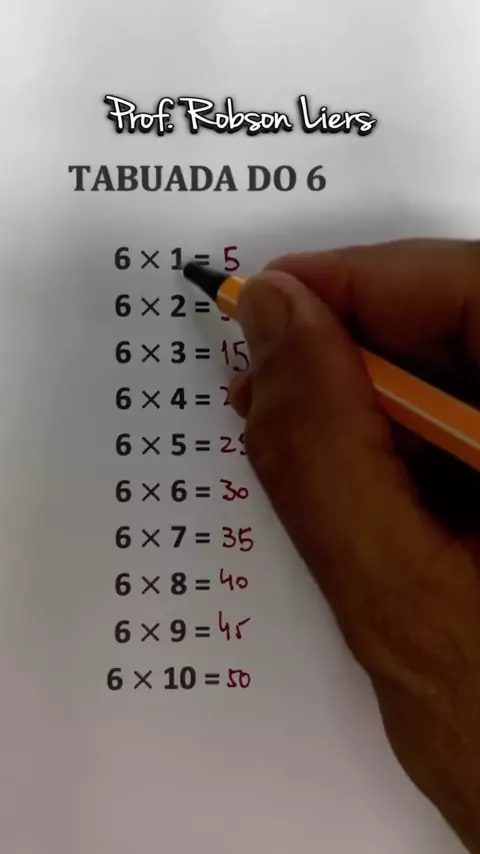 Prof. Robson Liers
TABUADA DO 6
6 × 1 = 5
6 × 2 =
6 × 3 = 15
6 × 4 =
6 × 5 = 25
6 × 6 = 30
6 × 7 = 35
6 × 8 = 40
6 × 9 = 45
6 × 10 = 50